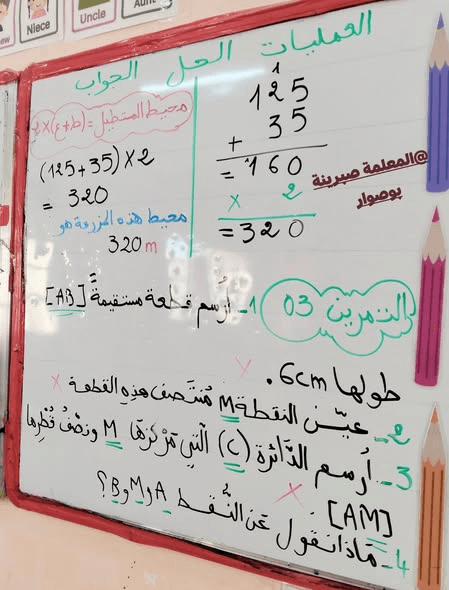 Niece
Uncle
Aunt
العمليات الحل الجواب
محيط المستطيل = (ط+ع)×2
(125+35)×2
= 320
محيط هذه المزرعة هو
320 m
1
125
+ 35
= 160
× 2
= 320
@المعلمة صبرينة
بوصوار
التمرين 03
1- أرسم قطعة مستقيمة [AB]
طولها 6cm.
2- عيّن النقطة M مُنتَصف هذِهِ القطعة
3- أرسم الدَّائرة (C) الّتي مَرْكزهَا M ونصْفُ قُطْرِها
[AM]
4- مَاذا نقول عَن النُّقط A و M و B؟